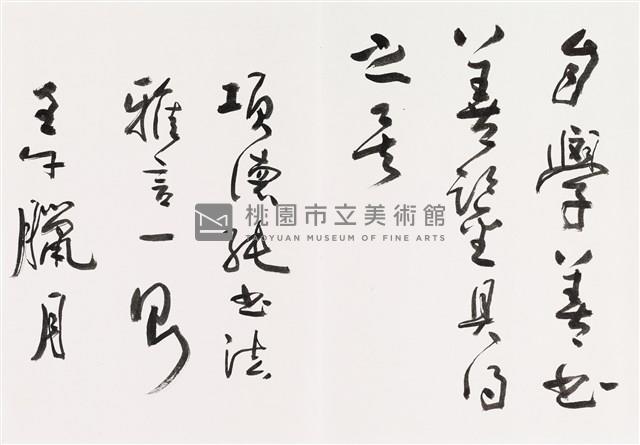 自學善書
善鑒具得
之矣
項德純書法
雅言一則
壬午臘月
桃園市立美術館
TAOYUAN MUSEUM OF FINE ARTS